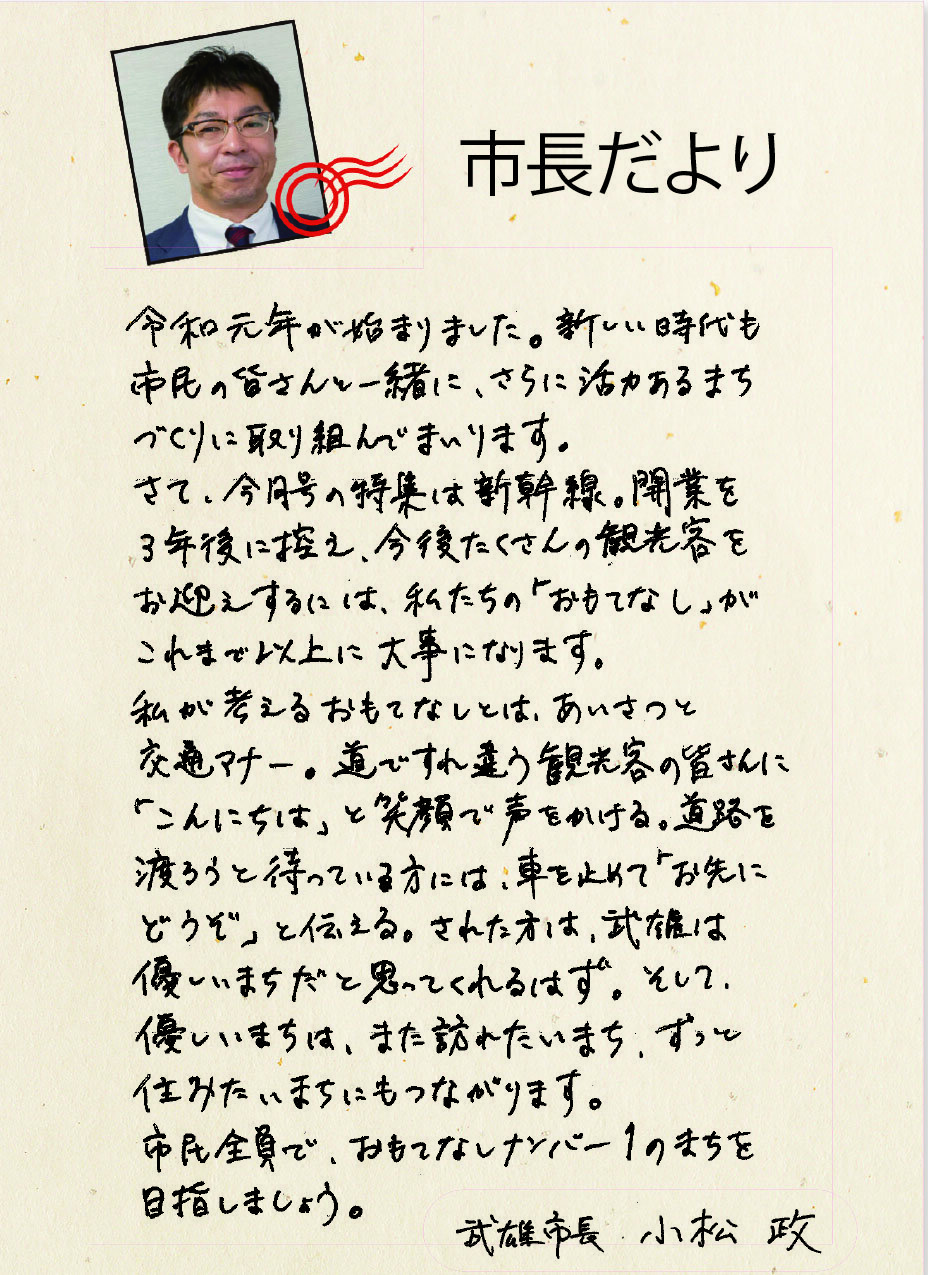 市長だより
令和元年が始まりました。新しい時代も
市民の皆さんと一緒に、さらに活力あるまち
づくりに取り組んでまいります。
さて、今月号の特集は新幹線。開業を
3年後に控え、今後たくさんの観光客を
お迎えするには、私たちの「おもてなし」が
これまで以上に大事になります。
私が考えるおもてなしとは、あいさつと
交通マナー。道ですれ違う観光客の皆さんに
「こんにちは」と笑顔で声をかける。道路を
渡ろうと待っている方には、車を止めて「お先に
どうぞ」と伝える。された方は、武雄は
優しいまちだと思ってくれるはず。そして、
優しいまちは、また訪れたいまち、ずっと
住みたいまちにもつながります。
市民全員で、おもてなしナンバー1のまちを
目指しましょう。
武雄市長 小松 政